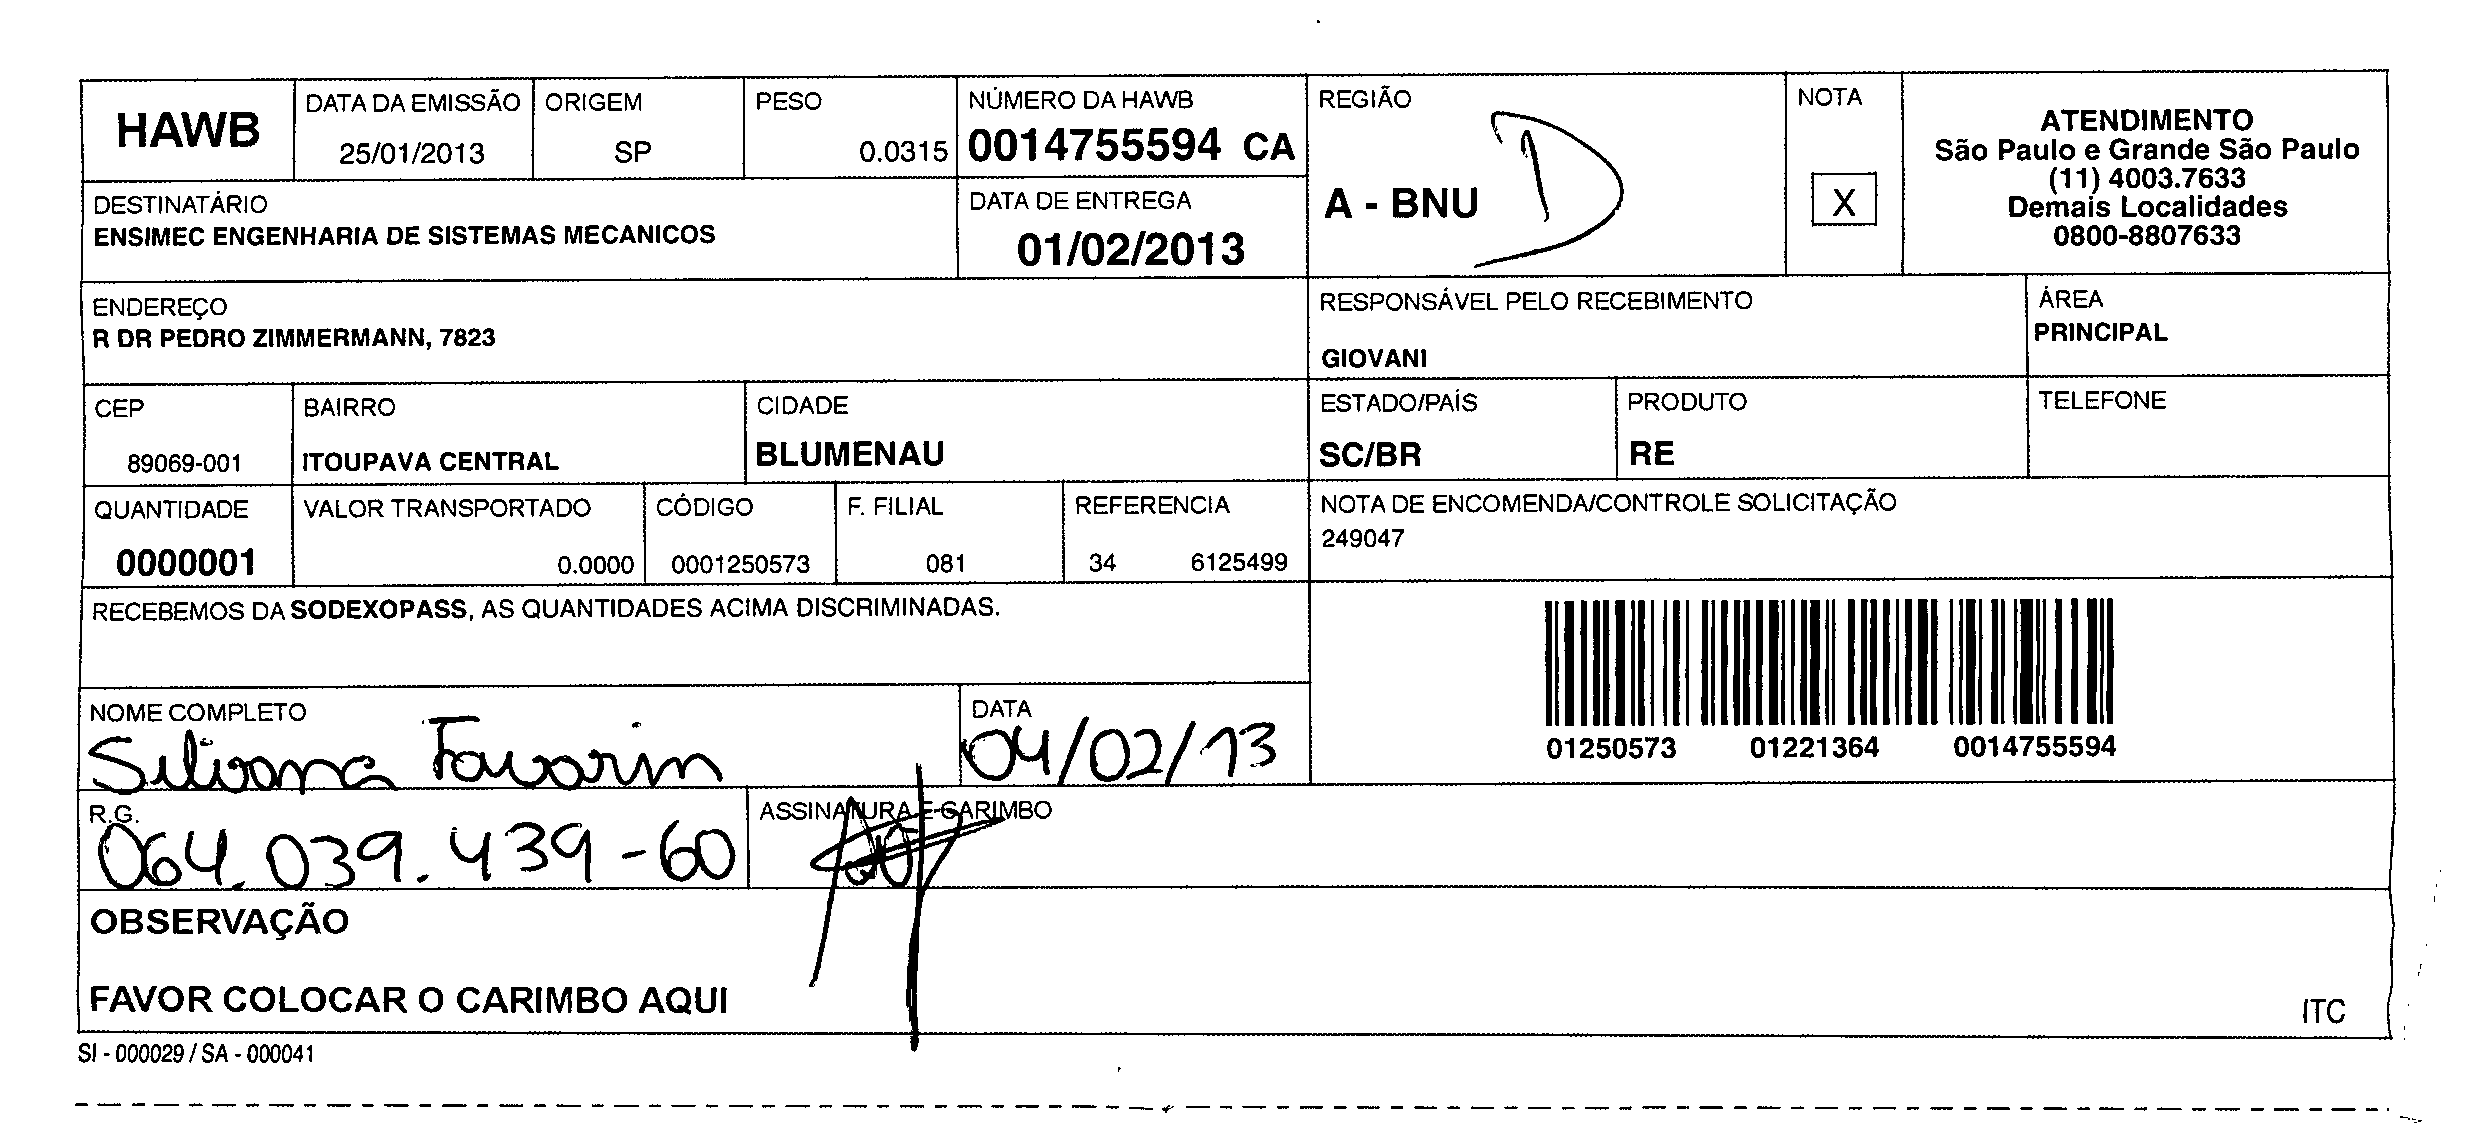 HAWB
DATA DA EMISSÃO
25/01/2013
ORIGEM
SP
PESO
0.0315
NÚMERO DA HAWB
0014755594 CA
REGIÃO
A - BNU
D
NOTA
X
ATENDIMENTO
São Paulo e Grande São Paulo
(11) 4003.7633
Demais Localidades
0800-8807633
DESTINATÁRIO
ENSIMEC ENGENHARIA DE SISTEMAS MECANICOS
DATA DE ENTREGA
01/02/2013
ENDEREÇO
R DR PEDRO ZIMMERMANN, 7823
RESPONSÁVEL PELO RECEBIMENTO
GIOVANI
ÁREA
PRINCIPAL
CEP
89069-001
BAIRRO
ITOUPAVA CENTRAL
CIDADE
BLUMENAU
ESTADO/PAÍS
SC/BR
PRODUTO
RE
TELEFONE
QUANTIDADE
0000001
VALOR TRANSPORTADO
0.0000
CÓDIGO
0001250573
F. FILIAL
081
REFERENCIA
34 6125499
NOTA DE ENCOMENDA/CONTROLE SOLICITAÇÃO
249047
RECEBEMOS DA SODEXOPASS, AS QUANTIDADES ACIMA DISCRIMINADAS.
01250573 01221364 0014755594
NOME COMPLETO
Silvana Favarim
DATA
04/02/13
R.G.
064.039.439-60
ASSINATURA E CARIMBO
OBSERVAÇÃO
FAVOR COLOCAR O CARIMBO AQUI
ITC
SI - 000029 / SA - 000041